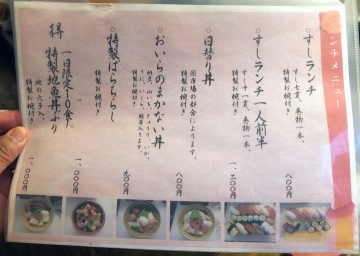 ランチメニュー
○すしランチ
すし七貫、巻物一本、
特製お椀付き
八〇〇円
○すしランチ一人前半
すし十一貫、巻物一本、
特製お椀付き
一、二〇〇円
○日替り丼
※市場の都合によります。
特製お椀付き
八〇〇円
○おいらのまかない丼
特製お椀付き
九〇〇円
○特製ばらちらし
特製お椀付き
一、〇〇〇円
得 一日限定10食
特製地魚丼ぶり
地の穴子入り、
特製お椀付き
一、〇〇〇円